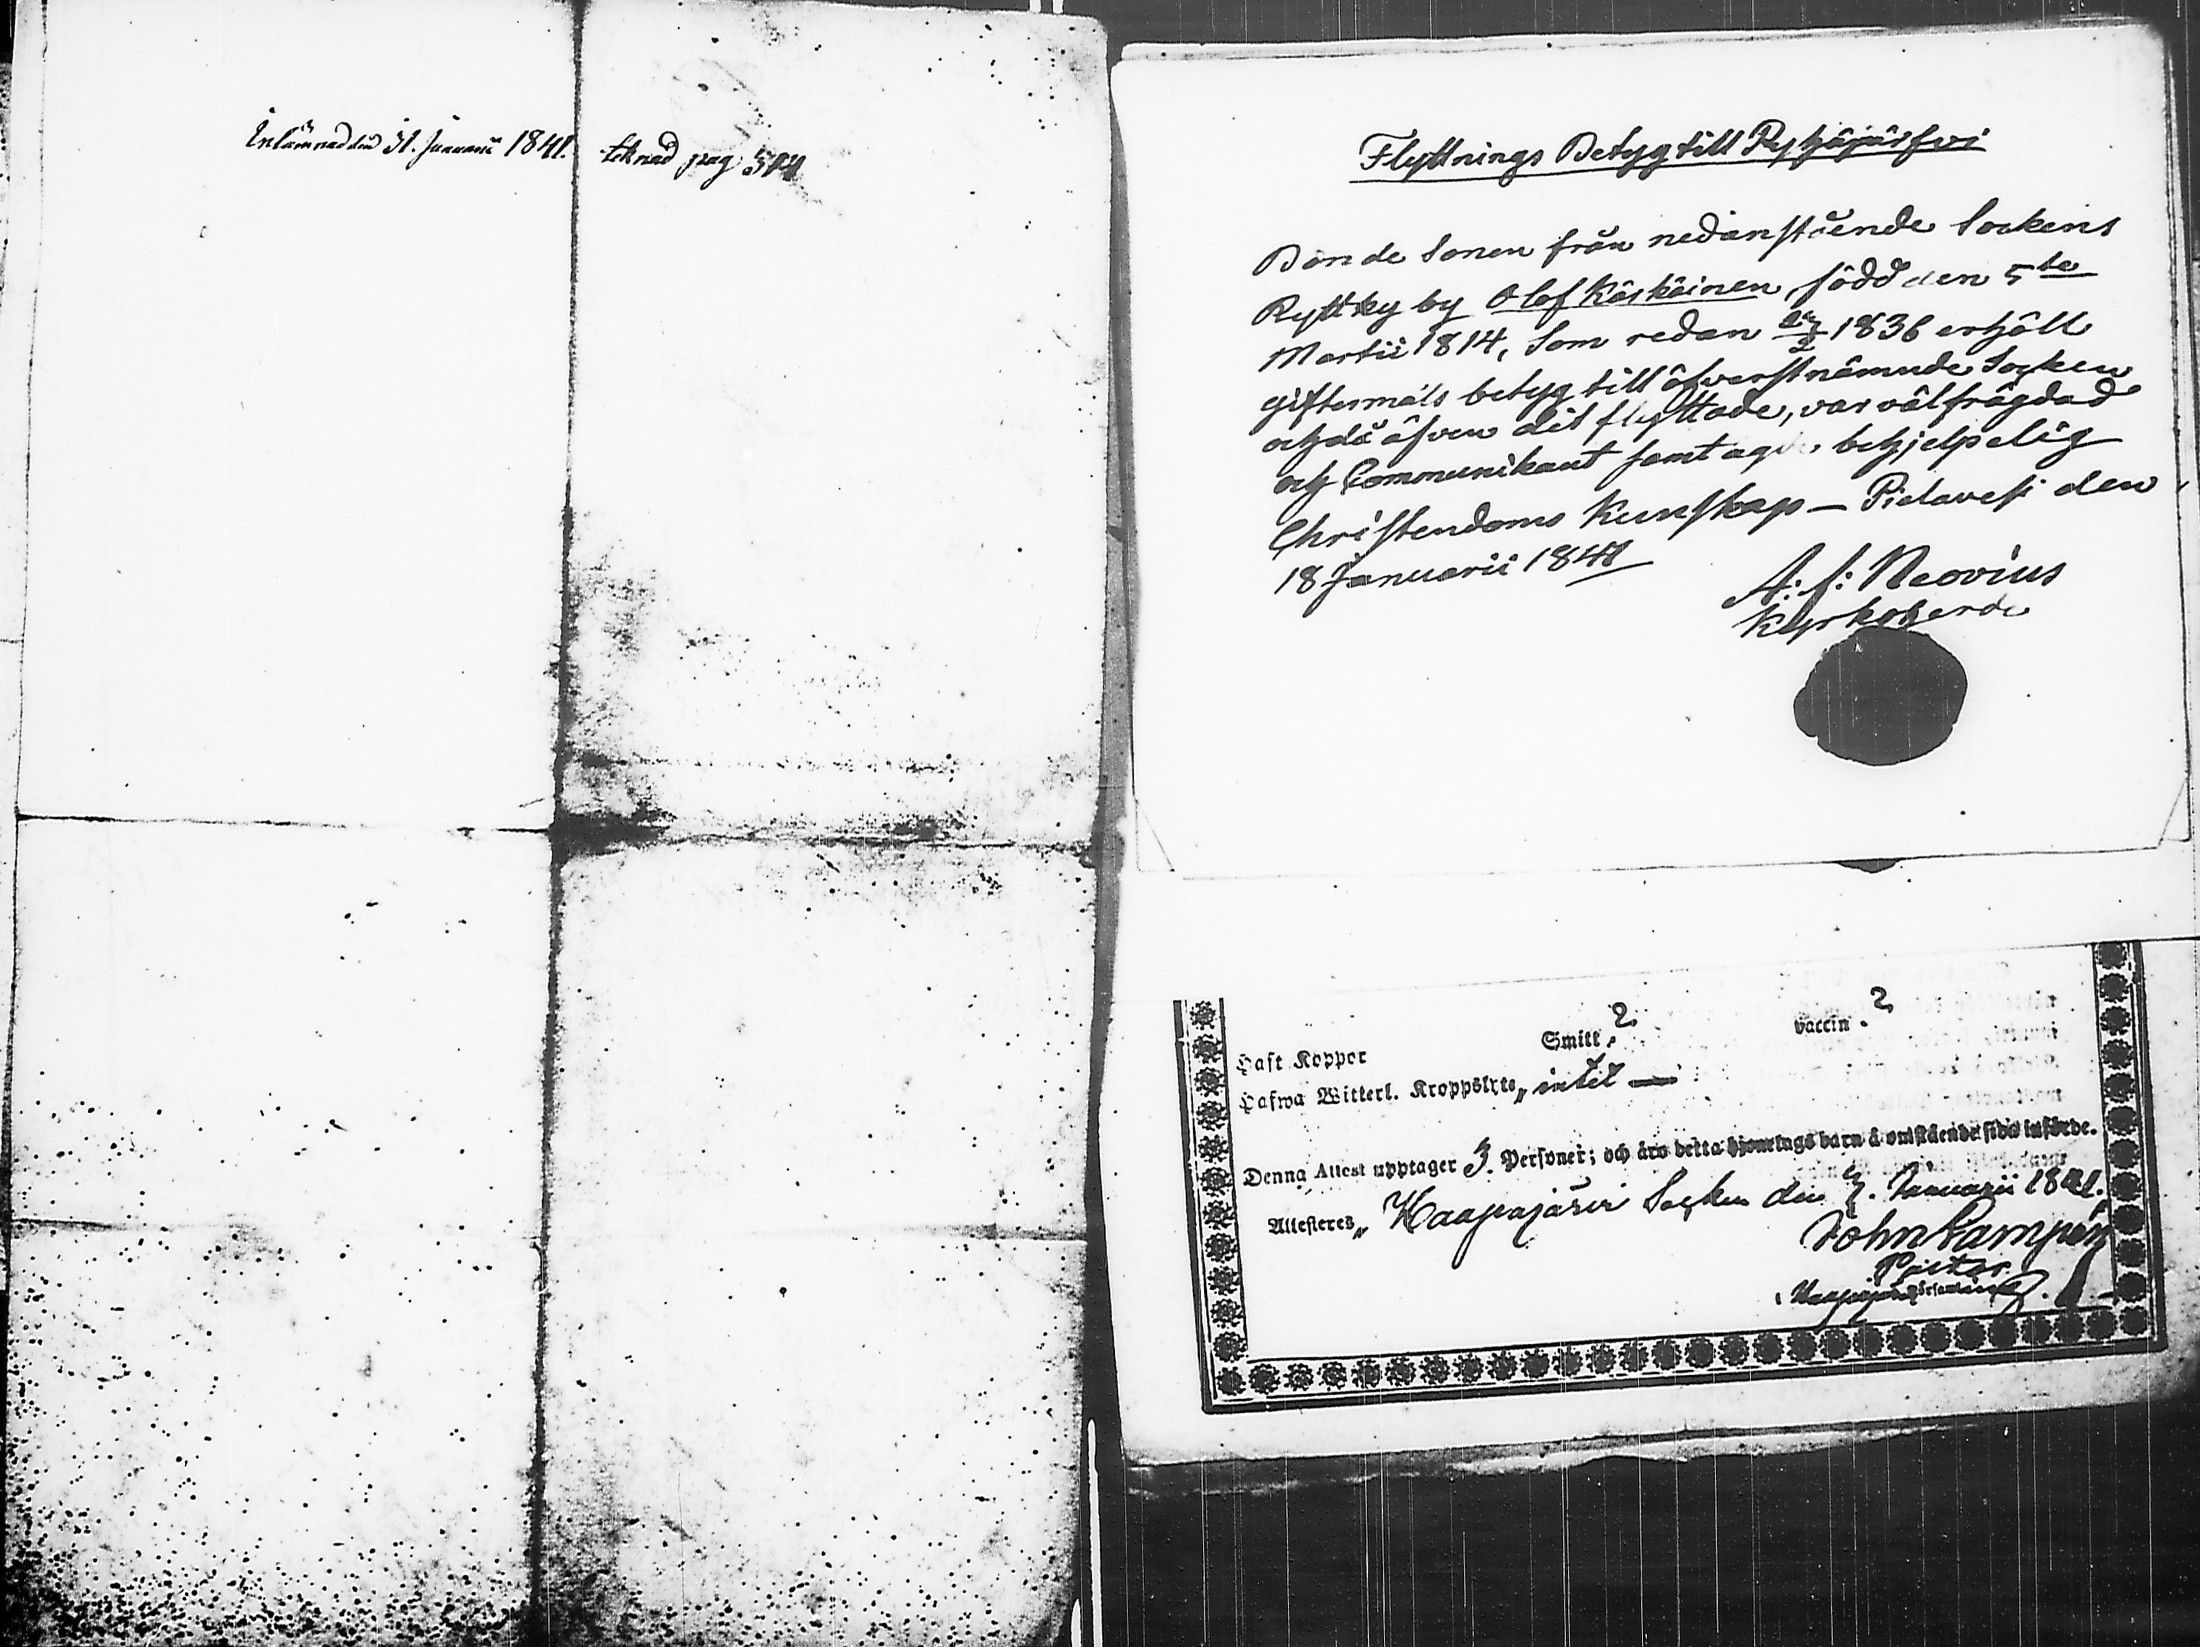 Inlämnad d. 31. Januarii 1841. teknad pag 504
Flyttnings Betyg till Pyhäjärfvi
Bonde Sonen från nedanstående Sockens
Ryttky by Olof Käskäinen, född den 5te
Martii 1814, Som redan 1836 erhöll
giftermåls betyg till öfverstnämnde Socken
och då äfven dit flyttade, var välfrägdad
och Communikant samt äger behjelpelig
Christendoms Kunskap – Pielavesi den
18 Januarii 1841
A: J: Neovius
Kyrkoherde
Haft Koppor Smitt. 2 vaccin. 2
Hafwa Witterl. Kroppslyte, intet —
Denna Attest upptager 3. Personer; och äro detta hjonelags barn å omstående sida införde.
Attesteres, Haapajärvi Socken den Januarii 1841.
John Lampén
Pastor